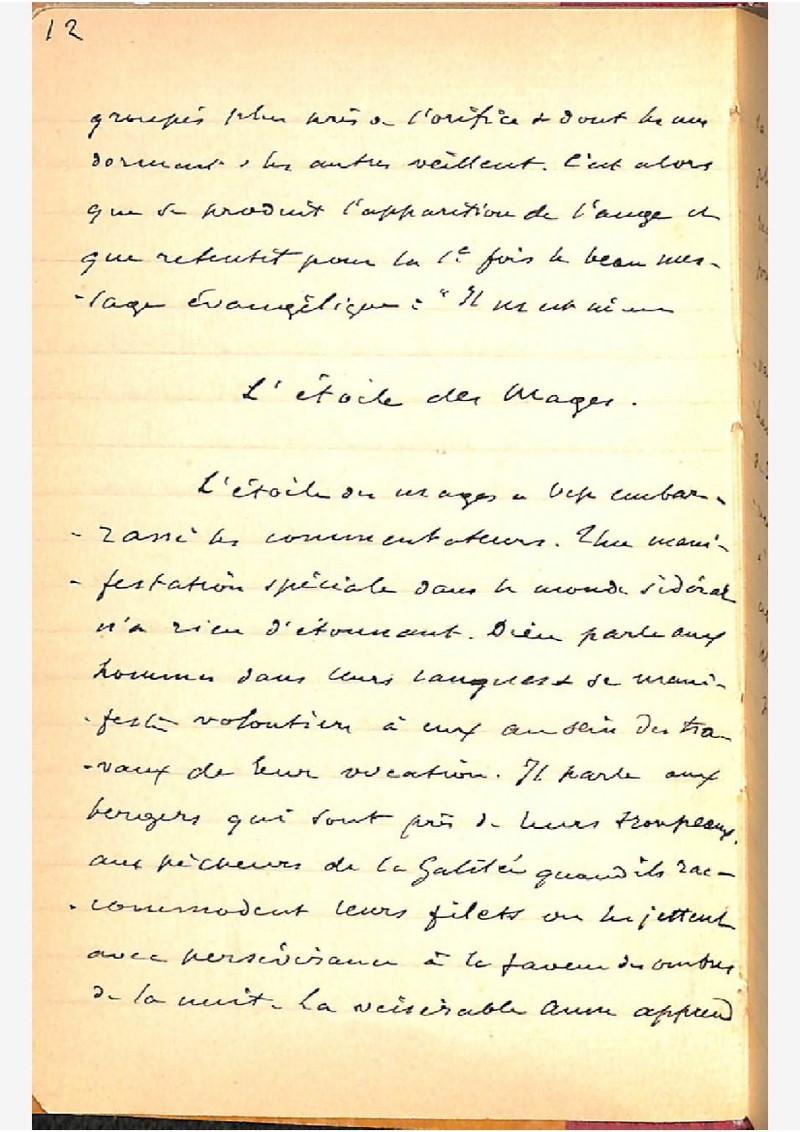 12
groupés plus près de l'orifice & dont les uns
dorment & les autres veillent. C'est alors
que se produit l'apparition de l'ange et
que retentit pour la 1e fois le beau mes-
-sage évangélique : " Il
L'étoile des Mages.
L'étoile des mages a bcp embar-
-rassé les commentateurs. Une mani-
-festation spéciale dans le monde sidéral
n'a rien d'étonnant. Dieu parle aux
hommes dans leurs langues & se mani-
-feste volontiers à eux au sein des tra-
-vaux de leur vocation. Il parle aux
bergers qui sont près de leurs troupeaux,
aux pêcheurs de la Galilée quand ils rac-
-commodent leurs filets ou les jettent
avec persévérance à la faveur des ombres
de la nuit. La vénérable Anne apprend